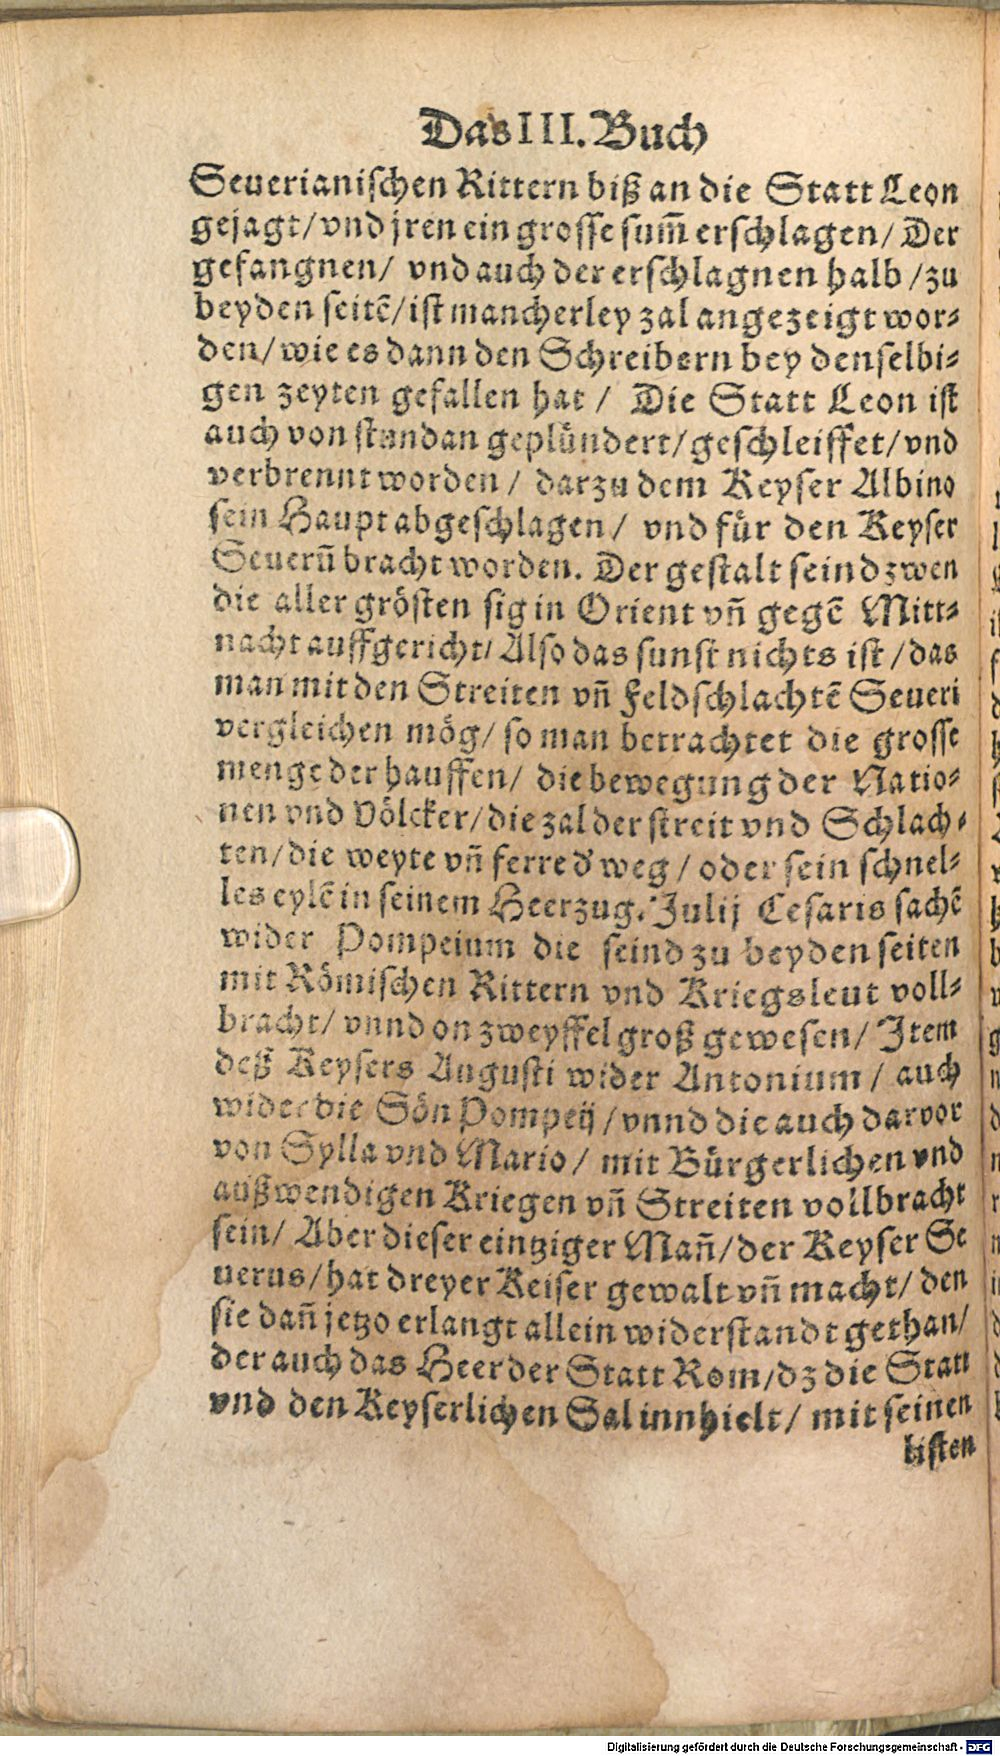 Das III. Buch
Seuerianischen Rittern biß an die Statt Leon
gejagt/ vnd jren ein grosse sum̃ erschlagen/ Der
gefangnen/ vnd auch der erschlagnen halb / zu
beyden seitẽ/ ist mancherley zal angezeigt wor-
den/ wie es dann den Schreibern bey denselbi-
gen zeyten gefallen hat / Die Statt Leon ist
auch von stundan geplündert/ geschleiffet/ vnd
verbrennt worden / darzu dem Keyser Albino
sein Haupt abgeschlagen/ vnd für den Keyser
Seuerũ bracht worden. Der gestalt seind zwen
die aller grösten sig in Orient vñ gegẽ Mitt-
nacht auffgericht/ Also das sunst nichts ist / das
man mit den Streiten vñ Feldschlachtẽ Seueri
vergleichen mög/ so man betrachtet die grosse
menge der hauffen/ die bewegung der Natio-
nen vnd Völcker/ die zal der streit vnd Schlach-
ten/ die weyte vñ ferre d' weg / oder sein schnel-
les eylẽ in seinem Heerzug. Julij Cesaris sachẽ
wider Pompeium die seind zu beyden seiten
mit Römischen Rittern vnd Kriegsleut voll-
bracht/ vnnd on zweyffel groß gewesen/ Item
deß Keysers Augusti wider Antonium / auch
wider die Sön Pompeij / vnnd die auch darvor
von Sylla vnd Mario / mit Bürgerlichen vnd
außwendigen Kriegen vñ Streiten vollbracht
sein/ Aber dieser eintziger Mañ/ der Keyser Se
uerus/ hat dreyer Keiser gewalt vñ macht/ den
sie dañ jetzo erlangt allein widerstandt gethan/
der auch das Heer der Statt Rom/ dz die Statt
vnd den Keyserlichen Sal innhielt/ mit seinen
listen
Digitalisierung gefördert durch die Deutsche Forschungsgemeinschaft - DFG